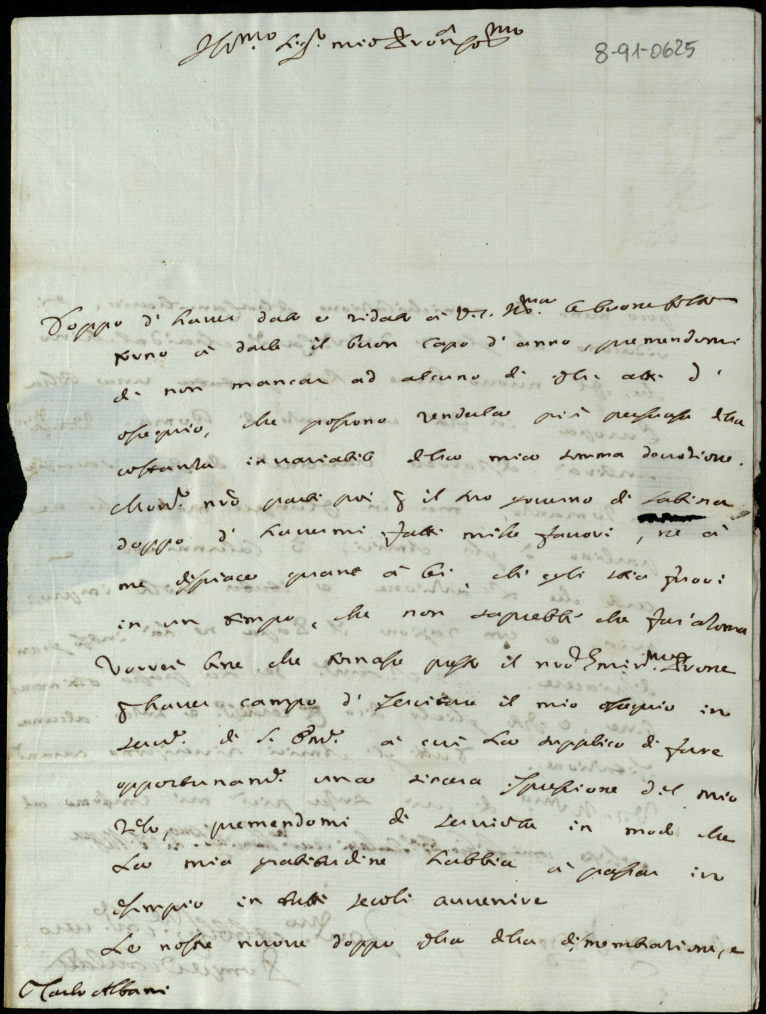 Ill.mo Sig.r mio Pron Col.mo
8-91-0625
Doppo d'haver dato e ridato à V.S. Ill.ma le buone feste
torno à darle il buon capo d'anno, premendomi
di non mancar ad alcuno di quelli atti d'
ossequio, che possono renderla più persuasa della
costanza invariabile della mia somma devozione.
Mons.r nro partì poi p il suo governo di Sabina
doppo d'havermi fatti mille favori, nè à
me dispiace quanto à lei, che egli stia fuori
in un tempo, che non saprebbe che far à Roma
Vorrei bene che tornasse presto il nro Emin.mo Prone
p haver campo d'esercitare il mio ossequio in
serv.o di S. Em.a à cui La supplico di fare
opportunam.te una sincera espressione del mio
zelo, premendomi di servirla in modo che
La mia gratitudine habbia à passar in
esempio in tutti secoli avvenire
Le nostre nuove doppo quella della dismembrazione, e
Carlo Albani